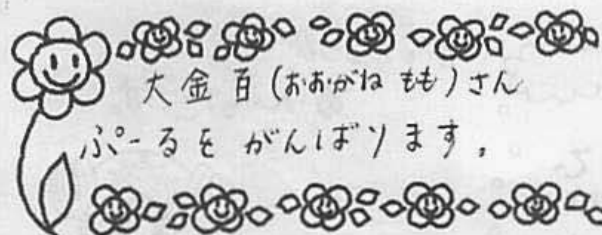 大金百(おおがね もも)さん
ぷーるを がんばります。